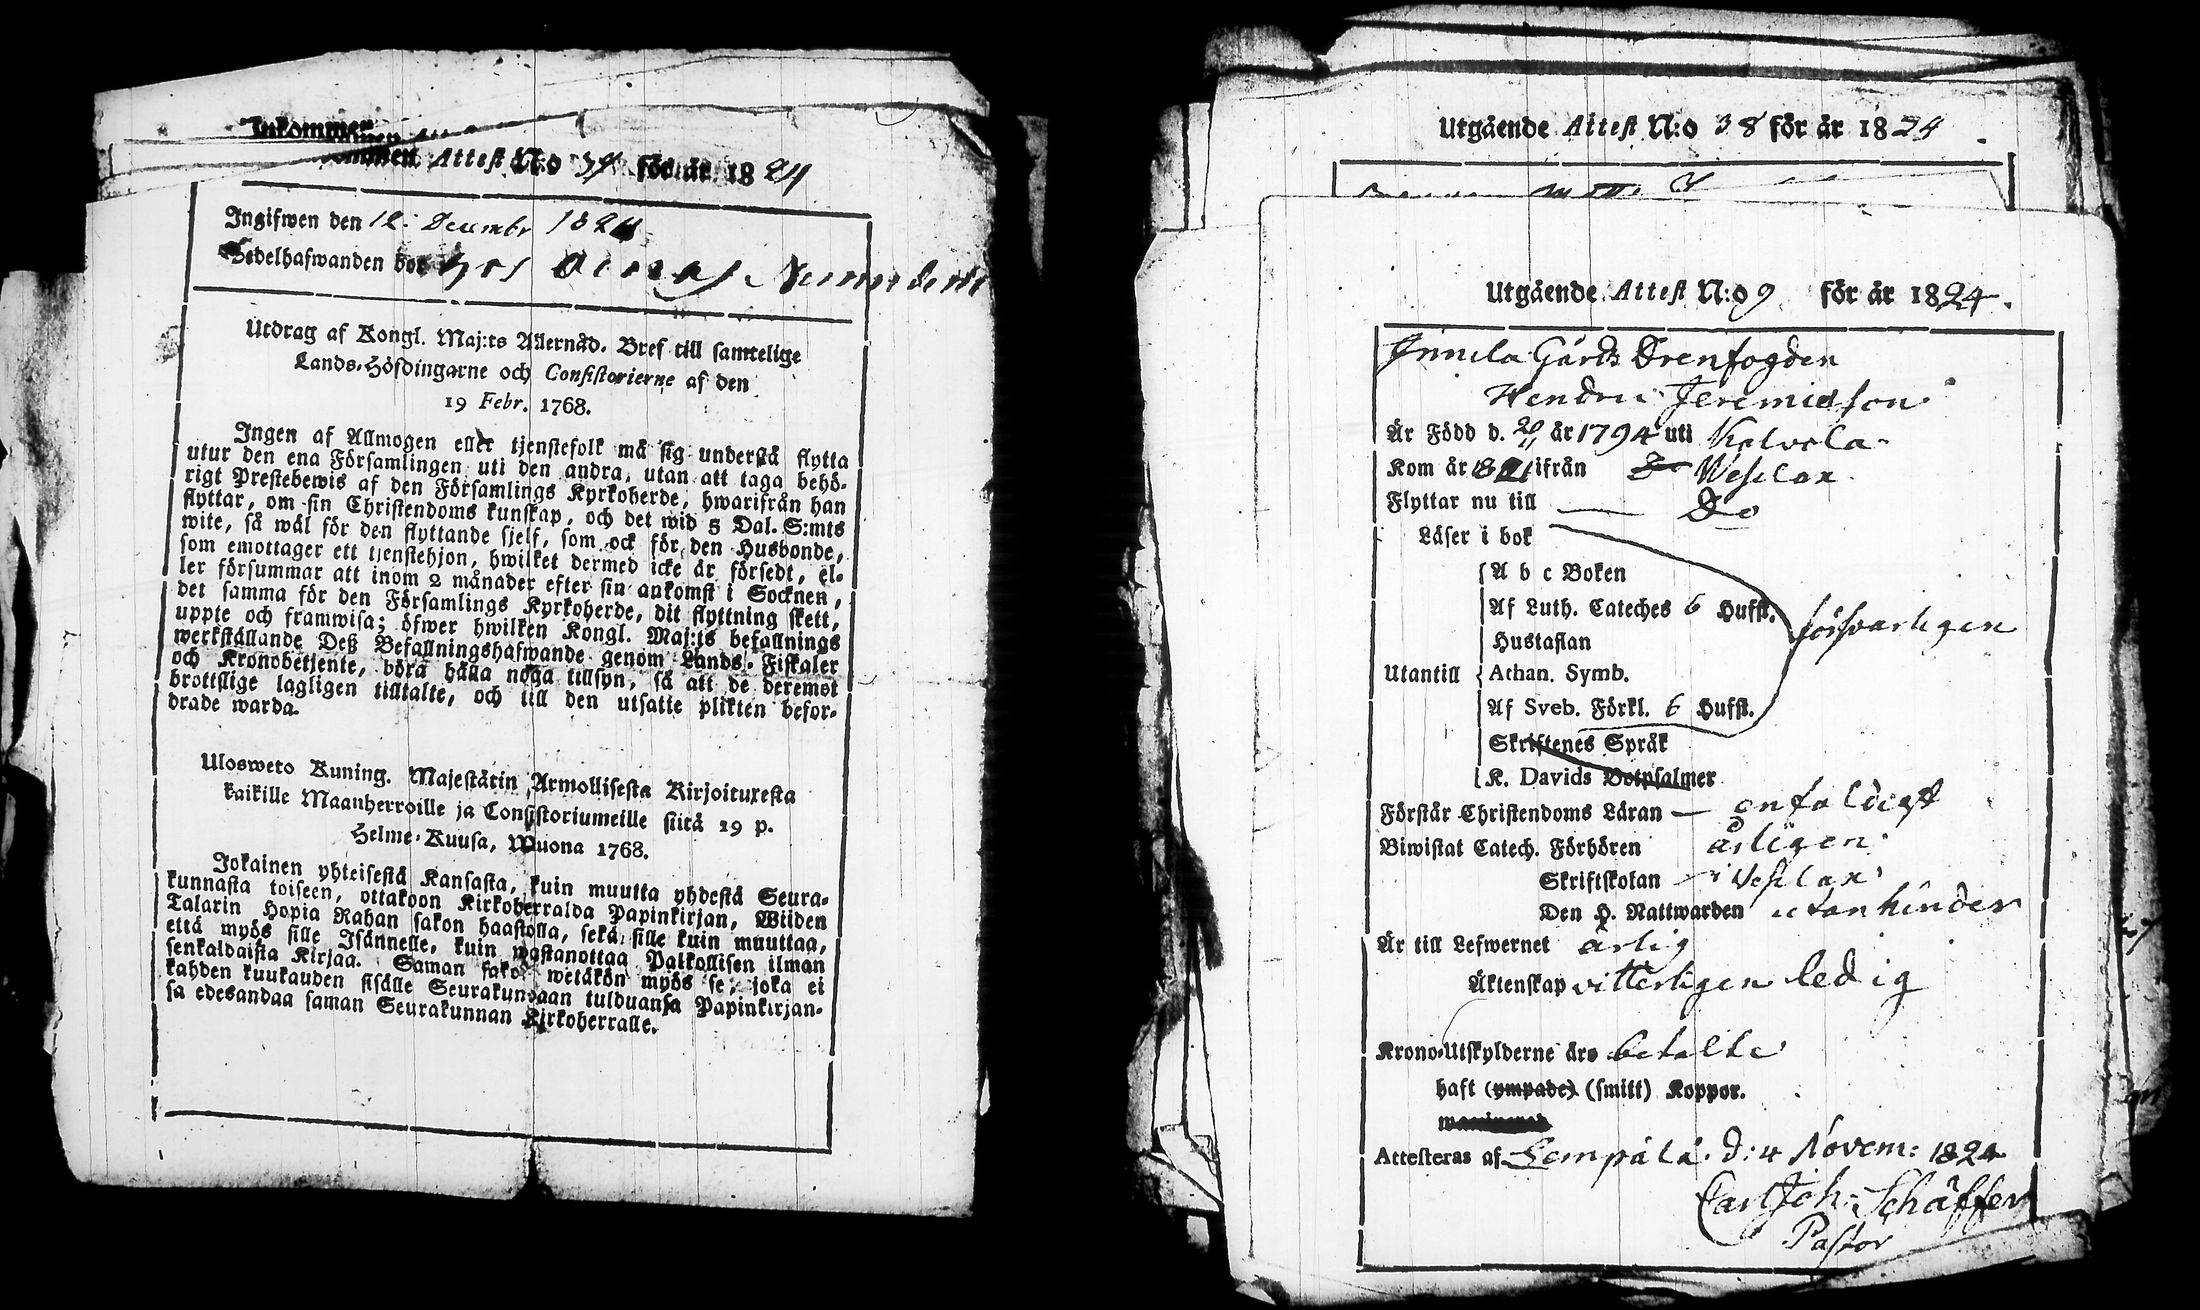 Inkommen
Attest N:o 39 för år 1824
Ingifwen den 12. Decembr 1824
Sedelhafwanden bor hos
Utdrag af Kongl. Maj:ts Allernåd. Bref till samtelige
Lands-Höfdingarne och Consistorierne af den
19 Febr. 1768.
Ingen af Allmogen eller tjenstefolk må sig understå flytta
utur den ena Församlingen uti den andra, utan att taga behö-
rigt Prestebewis af den Församlings Kyrkoherde, hwarifrån han
flyttar, om sin Christendoms kunskap, och det wid 5 Dal. S:mts
wite, så wäl för den flyttande sjelf, som ock för den Husbonde,
som emottager ett tjenstehjon, hwilket dermed icke är försedt, el-
ler försummar att inom 2 månader efter sin ankomst i Socknen,
det samma för den Församlings Kyrkoherde, dit flyttning skett,
uppte och framwisa; öfwer hwilken Kongl. Maj:ts befallnings
werkställande Deß Befallningshafwande genom Lands-Fiskaler
och Kronobetjente, böra hålla noga tillsyn, så att de deremot
brottslige lagligen tilltalte, och till den utsatte plikten befor-
drade warda.
Ulosweto Kuning. Majestätin Armollisesta Kirjoituxesta
kaikille Maanherroille ja Consistoriumeille siitä 19 p.
Helme-Kuusa, Wuona 1768.
Jokainen yhteisestä Kansasta, kuin muutta yhdestä Seura-
kunnasta toiseen, ottakoon Kirkoherralda Papinkirjan, Wiiden
Talarin Hopia Rahan sakon haastolla, sekä sille kuin muuttaa,
että myös sille Isännelle, kuin wastanottaa Palkollisen ilman
senkaldaista Kirjaa. Saman sakon wetäkön myös se, joka ei
kahden kuukauden sisälle Seurakundaan tulduansa Papinkirjan-
sa edesandaa saman Seurakunnan Kirkoherralle.
Utgående Attest N:o 38 för år 1824
Utgående Attest N:o 9 för år 1824.
Innila Gårds Drenfogden
Hendric Jeremiæson
Är Född d. 20/11 år 1794 uti Kalvola
Kom år 1821 ifrån Wesilax
Flyttar nu till — Do
Läser i bok
A b c Boken
Af Luth. Cateches 6 Hufst. försvarligen
Hustaflan
Utantill Athan. Symb.
Af Sveb. Förkl. 6 Hufst.
Skriftenes Språk
K. Davids Botpsalmer
Förstår Christendoms Läran — enfaldigt
Biwistat Catech. Förhören årligen
Skriftskolan — i Wesilax
Den H. Nattwarden utan hinder
Är till Lefwernet ärlig
Äktenskap vitterligen ledig
Krono-Utskylderne äro betalte
haft (ympade) (smitt) Koppor.
Attesteras af Lempälä. d: 4 Novem: 1824
Carl Joh: Schäffer
Pastor